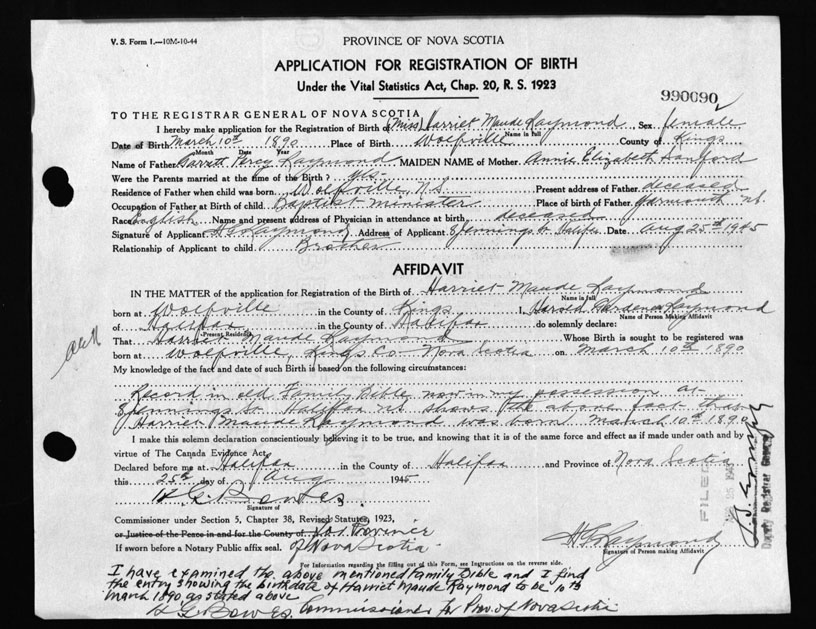 V. S. Form 1.—10M-10-44
PROVINCE OF NOVA SCOTIA
APPLICATION FOR REGISTRATION OF BIRTH
Under the Vital Statistics Act, Chap. 20, R. S. 1923
990090
TO THE REGISTRAR GENERAL OF NOVA SCOTIA
I hereby make application for the Registration of Birth of (Miss) Harriet Maude Raymond, Sex female
Name in full
Date of Birth March 10th 1890 Place of Birth Wolfville County of Kings
Month Date Year
Name of Father Percy Raymond MAIDEN NAME of Mother Annie Elizabeth
Were the Parents married at the time of the Birth? yes-
Residence of Father when child was born Wolfville, N.S. Present address of Father deceased
Occupation of Father at Birth of child Baptist minister Place of birth of Father Yarmouth N.S.
Race English Name and present address of Physician in attendance at birth deceased
Signature of Applicant Raymond Address of Applicant 8 Jennings St Halifax Date Aug 25th 1945
Relationship of Applicant to child Brother
AFFIDAVIT
IN THE MATTER of the application for Registration of the Birth of Harriet Maude Raymond
Name in full
born at Wolfville in the County of Kings I, Harold Raymond
Name of Person Making Affidavit
of Halifax in the County of Halifax do solemnly declare:
Present Residence
That Harriet Maude Raymond Whose Birth is sought to be registered was
born at Wolfville, Kings Co Nova Scotia on March 10th 1890
My knowledge of the fact and date of such Birth is based on the following circumstances:
Record in old Family Bible now in my possession at
8 Jennings St. Halifax N.S. shows the above fact that
Harriet Maude Raymond was born March 10th 1890
I make this solemn declaration conscientiously believing it to be true, and knowing that it is of the same force and effect as if made under oath and by
virtue of The Canada Evidence Act.
Declared before me at Halifax in the County of Halifax and Province of Nova Scotia
this 25th day of Aug 1945
H G Bowes
Signature of
Commissioner under Section 5, Chapter 38, Revised Statutes, 1923,
or Justice of the Peace in and for the County of Province
If sworn before a Notary Public affix seal. of Nova Scotia
Raymond
Signature of Person making Affidavit
FILED
Deputy Registrar General
For Information regarding the filling out of this Form, see Instructions on the reverse side.
I have examined the above mentioned Family Bible and I find
the entry showing the birthdate of Harriet Maude Raymond to be 10th
March 1890 as stated above
H G Bowes. Commissioner for Prov. of Nova Scotia